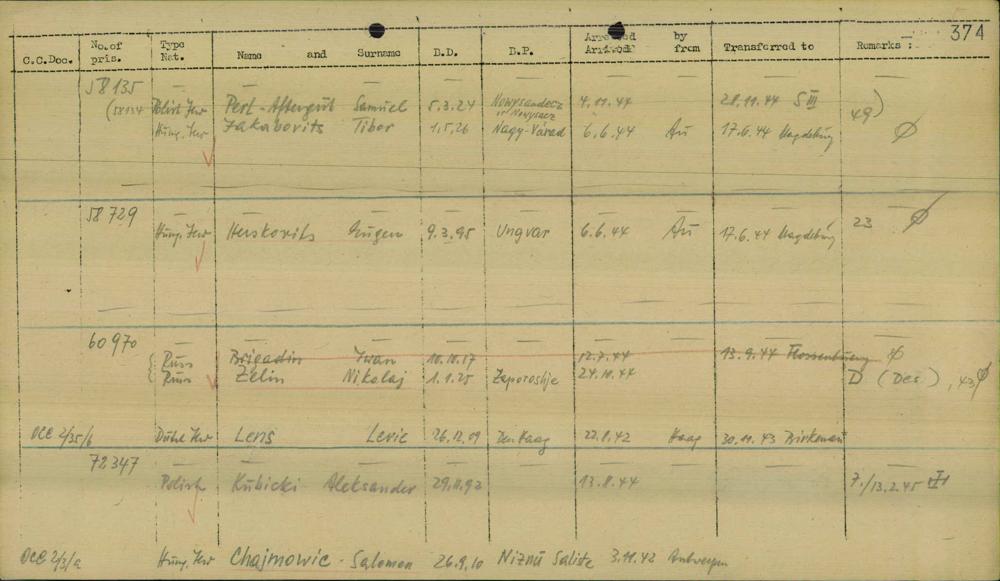 374
C.C.Doc. No. of pris. Type Nat. Name and Surname B.D. B.P. Arrested Arrived by from Transferred to Remarks :
58135
(58134 Polish Jew Perl-Aftergut Samuel 5.3.24 Nowysandecz Nowysacz 4.11.44 28.11.44 S III 49)
Hung. Jew Jakabovits Tibor 1.5.26 Nagy-Várad 6.6.44 Au 17.6.44 Magdeburg
58729
Hung. Jew Herskovits Eugen 9.3.95 Ungvar 6.6.44 Au 17.6.44 Magdeburg 23
60970
Russ Brigadin Iwan 10.10.17 12.7.44 13.9.44 Flossenbuerg
Russ Zelin Nikolaj 1.1.25 Zaporoshje 24.10.44 D (Des.), 43
OCC 2/35/6 Dutch Jew Lens Levie 26.12.09 Den Haag 22.8.42 Haag 30.11.43 Birkenau
72347
Polish Kubicki Aleksander 29.11.92 13.8.44 7./13.2.45 VI
OCC 2/3/a Hung. Jew Chajmowic - Salomon 26.9.10 Niznii Saliste 3.11.42 Antwerpen